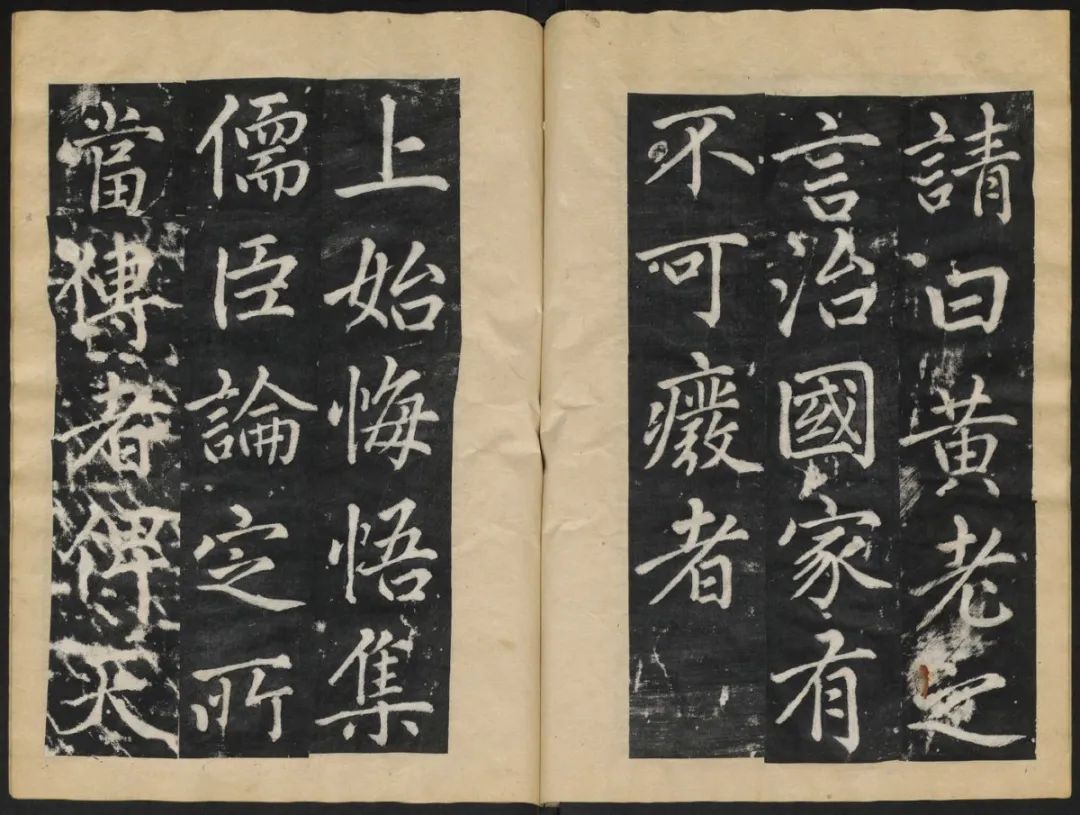 請曰黃老之
言治國家有
不可癈者
上始悔悟集
儒臣論定所
當傳者俾天